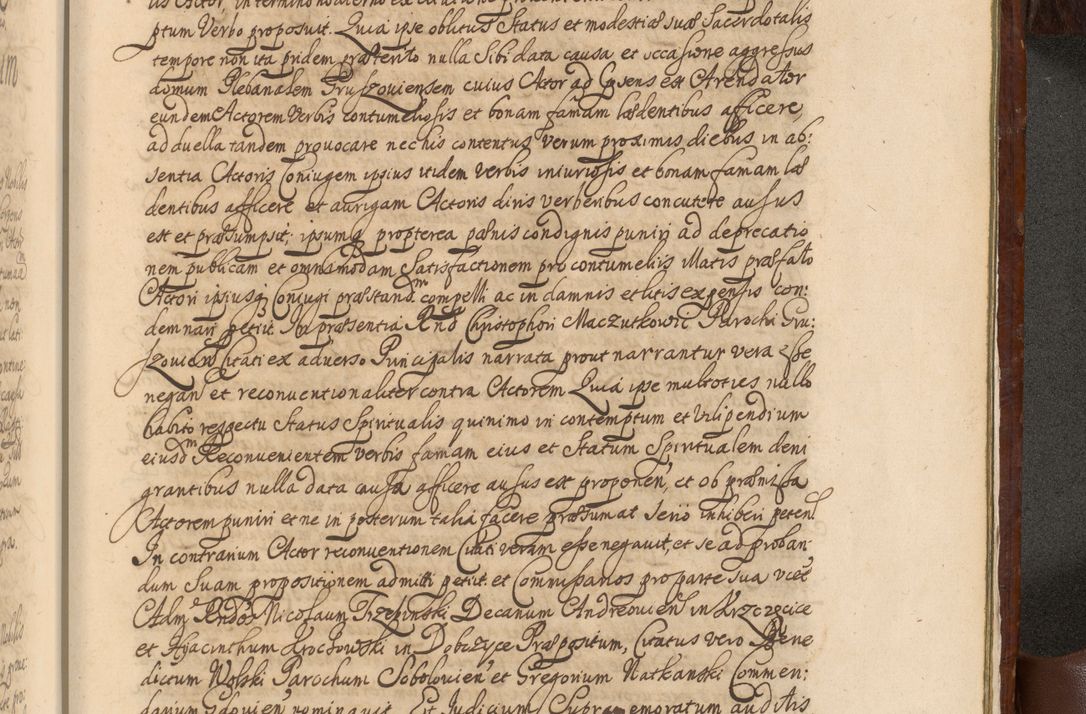 ptum Verbo proposuit. Quia ipse oblitus Status et modestiæ suæ Sacerdotalis
tempore non ita pridem præterito nulla Sibi data causa et occasione aggressus
domum Plebanalem Pruszoviensem cuius Actor ad præsens est Arendator
eundem Actorem Verbis contumeliosis et bonam famam lædentibus afficere,
ad duella tandem provocare nec his contentus verum proximis diebus in ab:
sentia Actoris Coniugem ipsius itidem verbis iniuriosis et bonam famam læ
dentibus afficere et aurigam Actoris diris verberibus concutere ausus
est et præsumpsit; ipsumq propterea pænis condignis puniri ad deprecatio
nem publicam et omnimodam Satisfactionem pro contumeliis illatis præfato
Actori ipsiusq Coniugi præstandm compelli ac in damnis et litis expensis con:
demnari petiit. In præsentia Rndi Christophori Maczutkowic Parochi Gru:
szovien Citati ex adverso Principalis narrata prout narrantur vera esse
negan et reconventionaliter contra Actorem Quia ipse multoties nullo
habito respectu Status Spiritualis quinimo in contemptum et Vilipendium
eiusdm Reconvenientem verbis famam eius et Statum Spiritualem deni
grantibus nulla data causa afficere ausus est proponen, et ob præmissa
Actorem puniri et ne in posterum talia facere præsumat serio inhiberi peten
In contrarium Actor reconventionem Citati veram esse negavit, et se ad proban
dum Suam propositionem admitti petiit et Commissarios pro parte sua vcet
Adm Rndos Nicolaum Trzepinski Decanum Andreovien in Krzczęcice
et Hyacinthum Krochowski in Dobczyce Præpositum, Citatus vero Bene
dictum Wolski Parochum Sobolovien et Gregorium Natkanski Commen:
darium nominavit Et Judicium Supra memoratum auditis